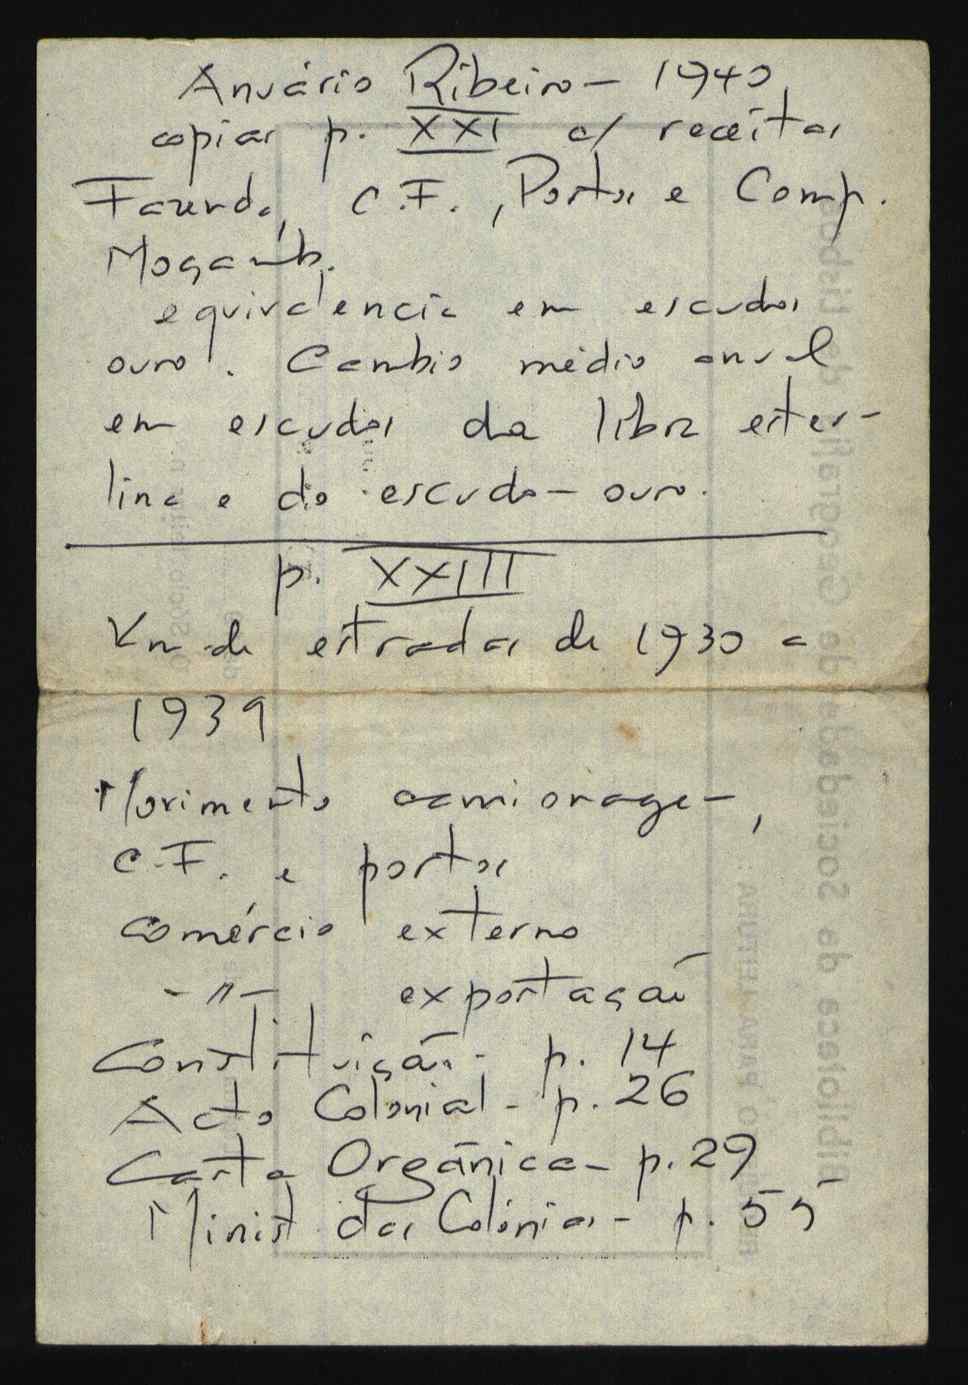 Anuário Ribeiro - 1940
copiar p. XXI c/ receitas
Fazenda, C.F., Portos e Comp.
Moçamb.
equivalencia em escudos
ouro. Cambio médio anual
em escudos da libra ester-
lina e do escudo-ouro.
p. XXIII
Km de estradas de 1930 a
1939
Movimento camionagem,
C.F. e portos
Comércio externo
-"- exportação
Constituição - p. 14
Acto Colonial - p. 26
Carta Orgânica - p. 29
Minist das Colónias - p. 55
Biblioteca da Sociedade de Geografia de Lisboa
PARA LEITURA